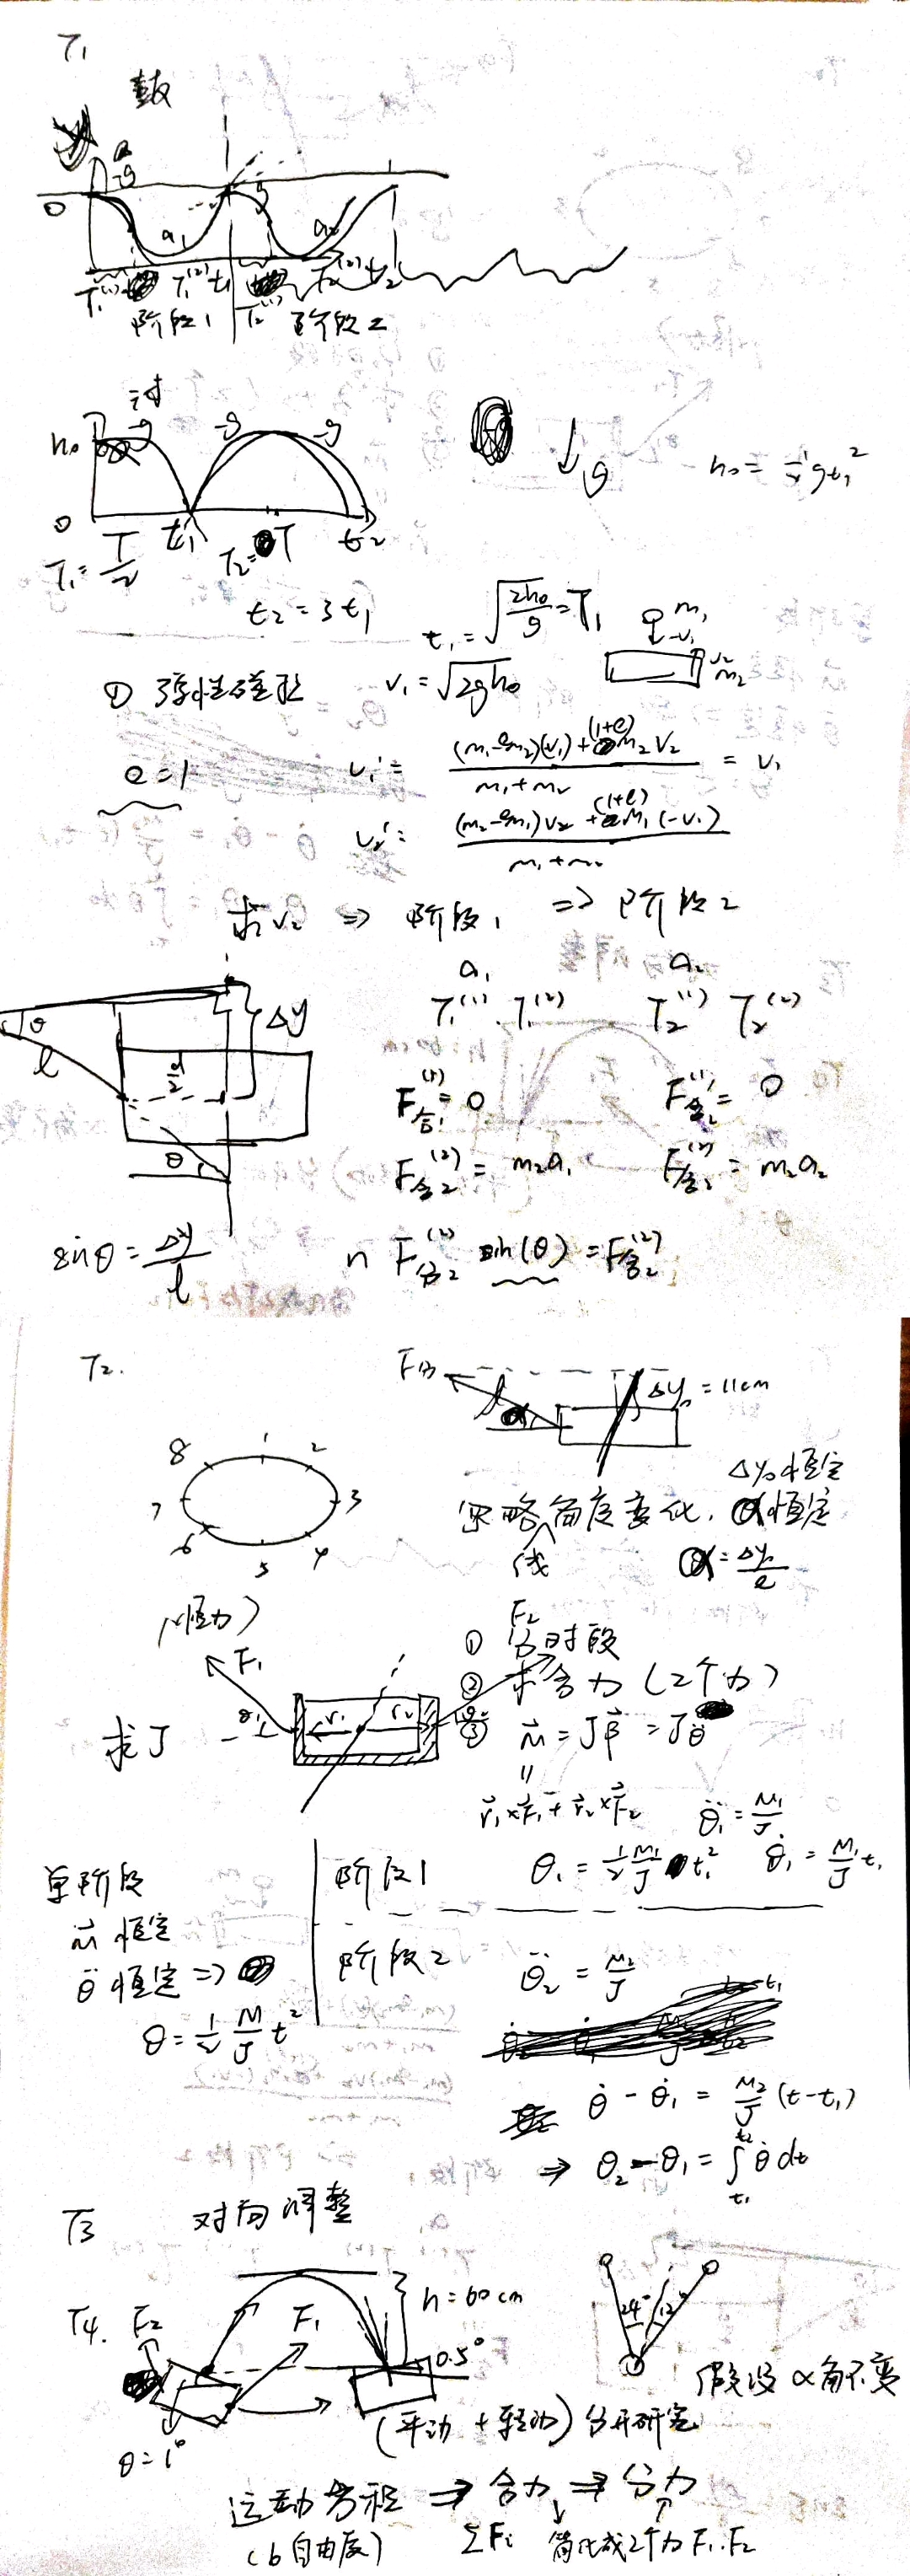 T₁
鼓
a
-g
0
g
a₁
a₂
T₁⁽¹⁾ T₁⁽²⁾ t₁ T₂⁽¹⁾ T₂⁽²⁾ t₂
阶段1 阶段2
讨
h₀ -g -g -g
↓g h₀ = ½gt₁²
0 t₁ t₂
T₁ = T/2 T₂ = T
t₂ = 3t₁
t₁ = √(2h₀/g) = T₁
m₁
-v₁
v₂
m₂
① 弹性碰撞 v₁ = √(2gh₀)
e = 1 v₁' = ((m₁-em₂)(-v₁) + (1+e)m₂v₂)/(m₁+m₂) = v₁
v₂' = ((m₂-em₁)v₂ + (1+e)m₁(-v₁))/(m₁+m₂)
求v₂ ⇒ 阶段1 ⇒ 阶段2
a₁ a₂
T₁⁽¹⁾ T₁⁽²⁾ T₂⁽¹⁾ T₂⁽²⁾
θ Δy
l d/2
θ
F合₁⁽¹⁾ = 0 F合₂⁽¹⁾ = 0
F合₂⁽²⁾ = m₂a₁ F合₂⁽²⁾ = m₂a₂
sinθ = Δy/l n F分₂⁽²⁾ sin(θ) = F合₂⁽²⁾
T₂.
F分 l α Δy₀ = 11cm
1 2 3 4 5 6 7 8
Δy₀恒定
忽略角度变化, α恒定
线
α = Δy₀/l
(恒力)
F₁ F₂
θ₁ r₁ r₂ θ₂
求J
① 分时段
② 求合力 (2个力)
③ M = Jβ = Jθ̈
॥
r₁×F₁ + r₂×F₂ θ̈₁ = M₁/J
单阶段
M 恒定
θ̈ 恒定 ⇒
θ = ½ M/J t²
阶段1 θ₁ = ½ M₁/J t₁² θ̇₁ = M₁/J t₁
阶段2 θ̈₂ = M₂/J
θ̇ - θ̇₁ = M₂/J (t-t₁)
⇒ θ₂ - θ₁ = ∫t₁t₂ θ̇ dt
T3 对向调整
T4. F₂ F₁ h = 60cm
0.5°
24° 12°
假设α角不变
θ = 1°
(平动 + 转动) 分开研究
运动方程 ⇒ 合力 ⇒ 分力
(6自由度) ΣFi 简化成2个力 F₁.F₂